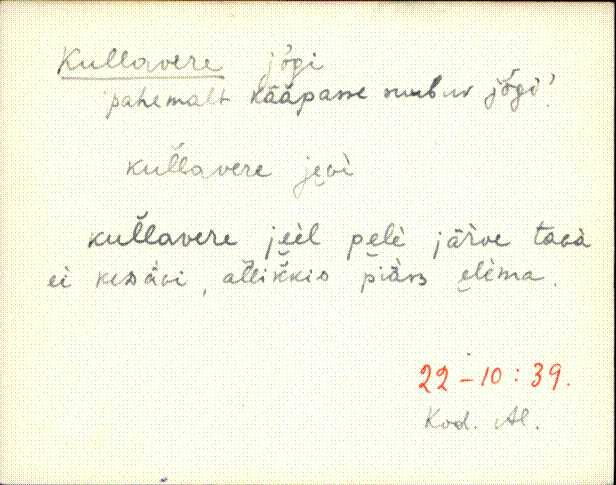 Kullavere jõgi
pahemalt Kääpasse suubuv jõgi!
kullavere je̮ɢì
kullavere jeèl pelè järve taɢà
ei kesäɢi, allikkis piäɒs e̮lèma.
22-10:39.
Kod. Al.